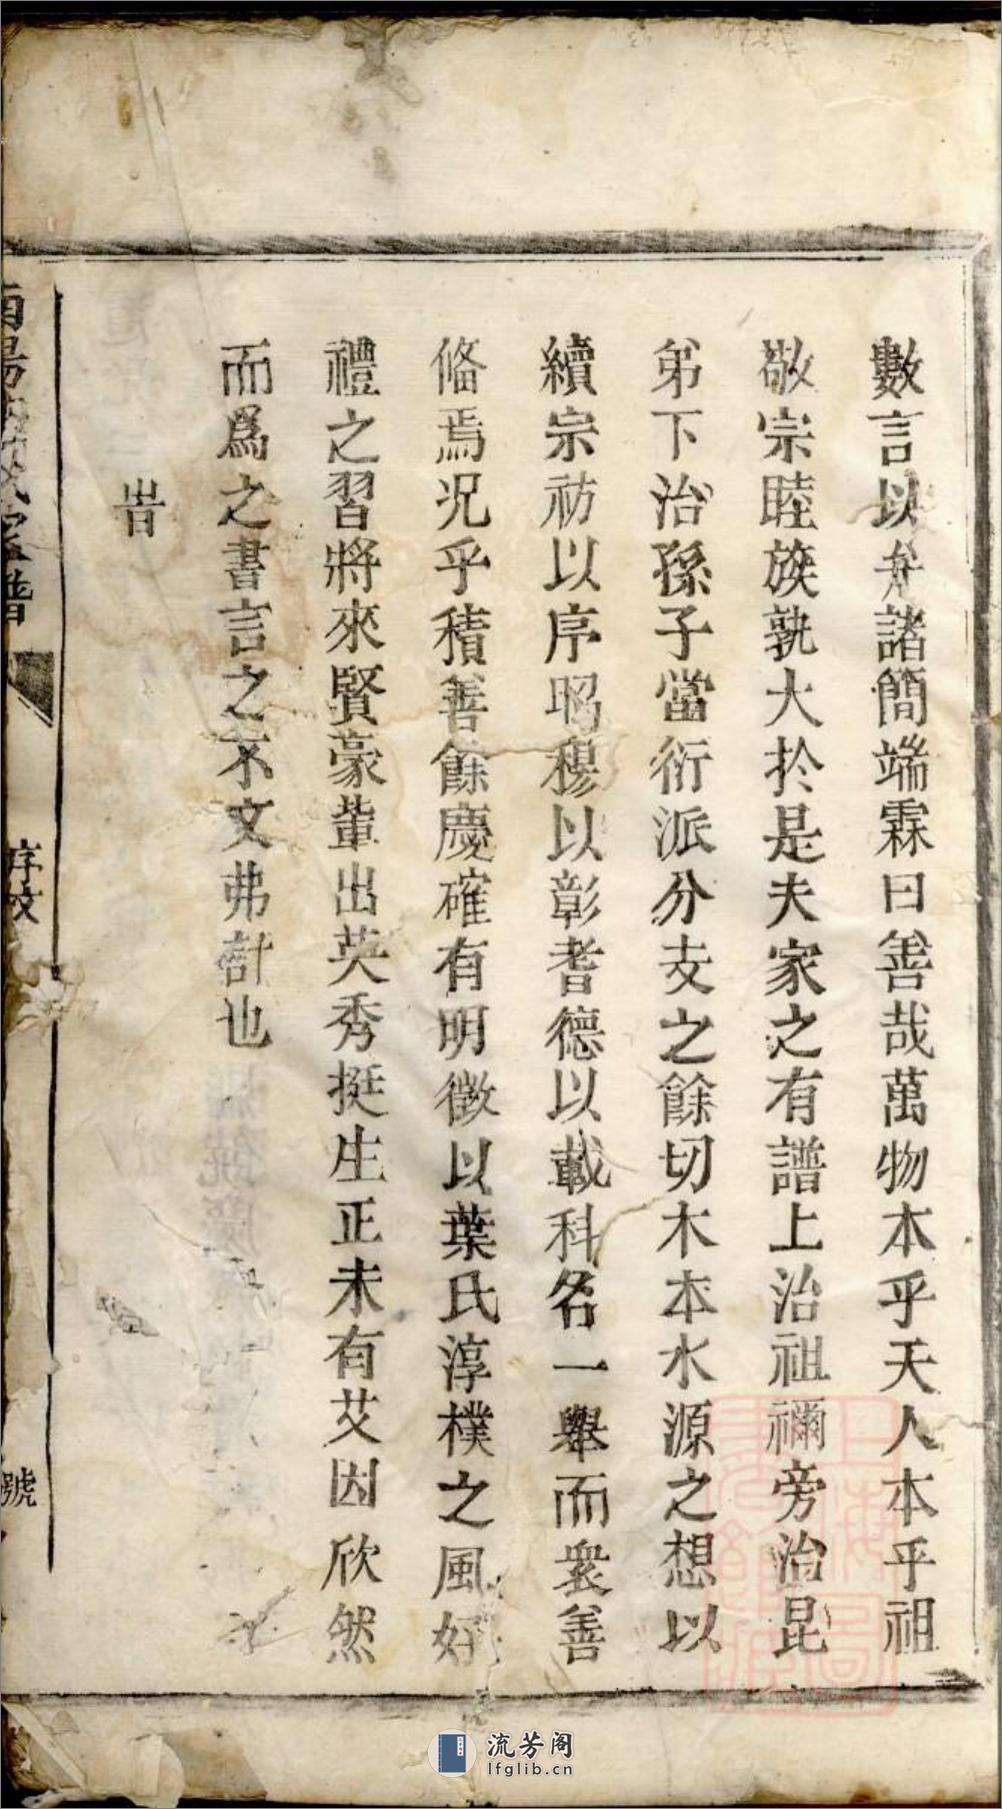 數言以弁諸簡端霖曰善哉萬物本乎天人本乎祖
敬宗睦族孰大於是夫家之有譜上治祖禰旁治昆
弟下治孫子當衍派分支之餘切木本水源之想以
續宗祊以序昭穆以彰耆德以載科名一舉而衆善
俻焉况乎積善餘慶確有明徵以葉氏淳樸之風好
禮之習將來賢豪輩出英秀挺生正未有艾因欣然
而爲之書言之不文弗計也
旹
序文
號
流芳阁
lfglib.cn